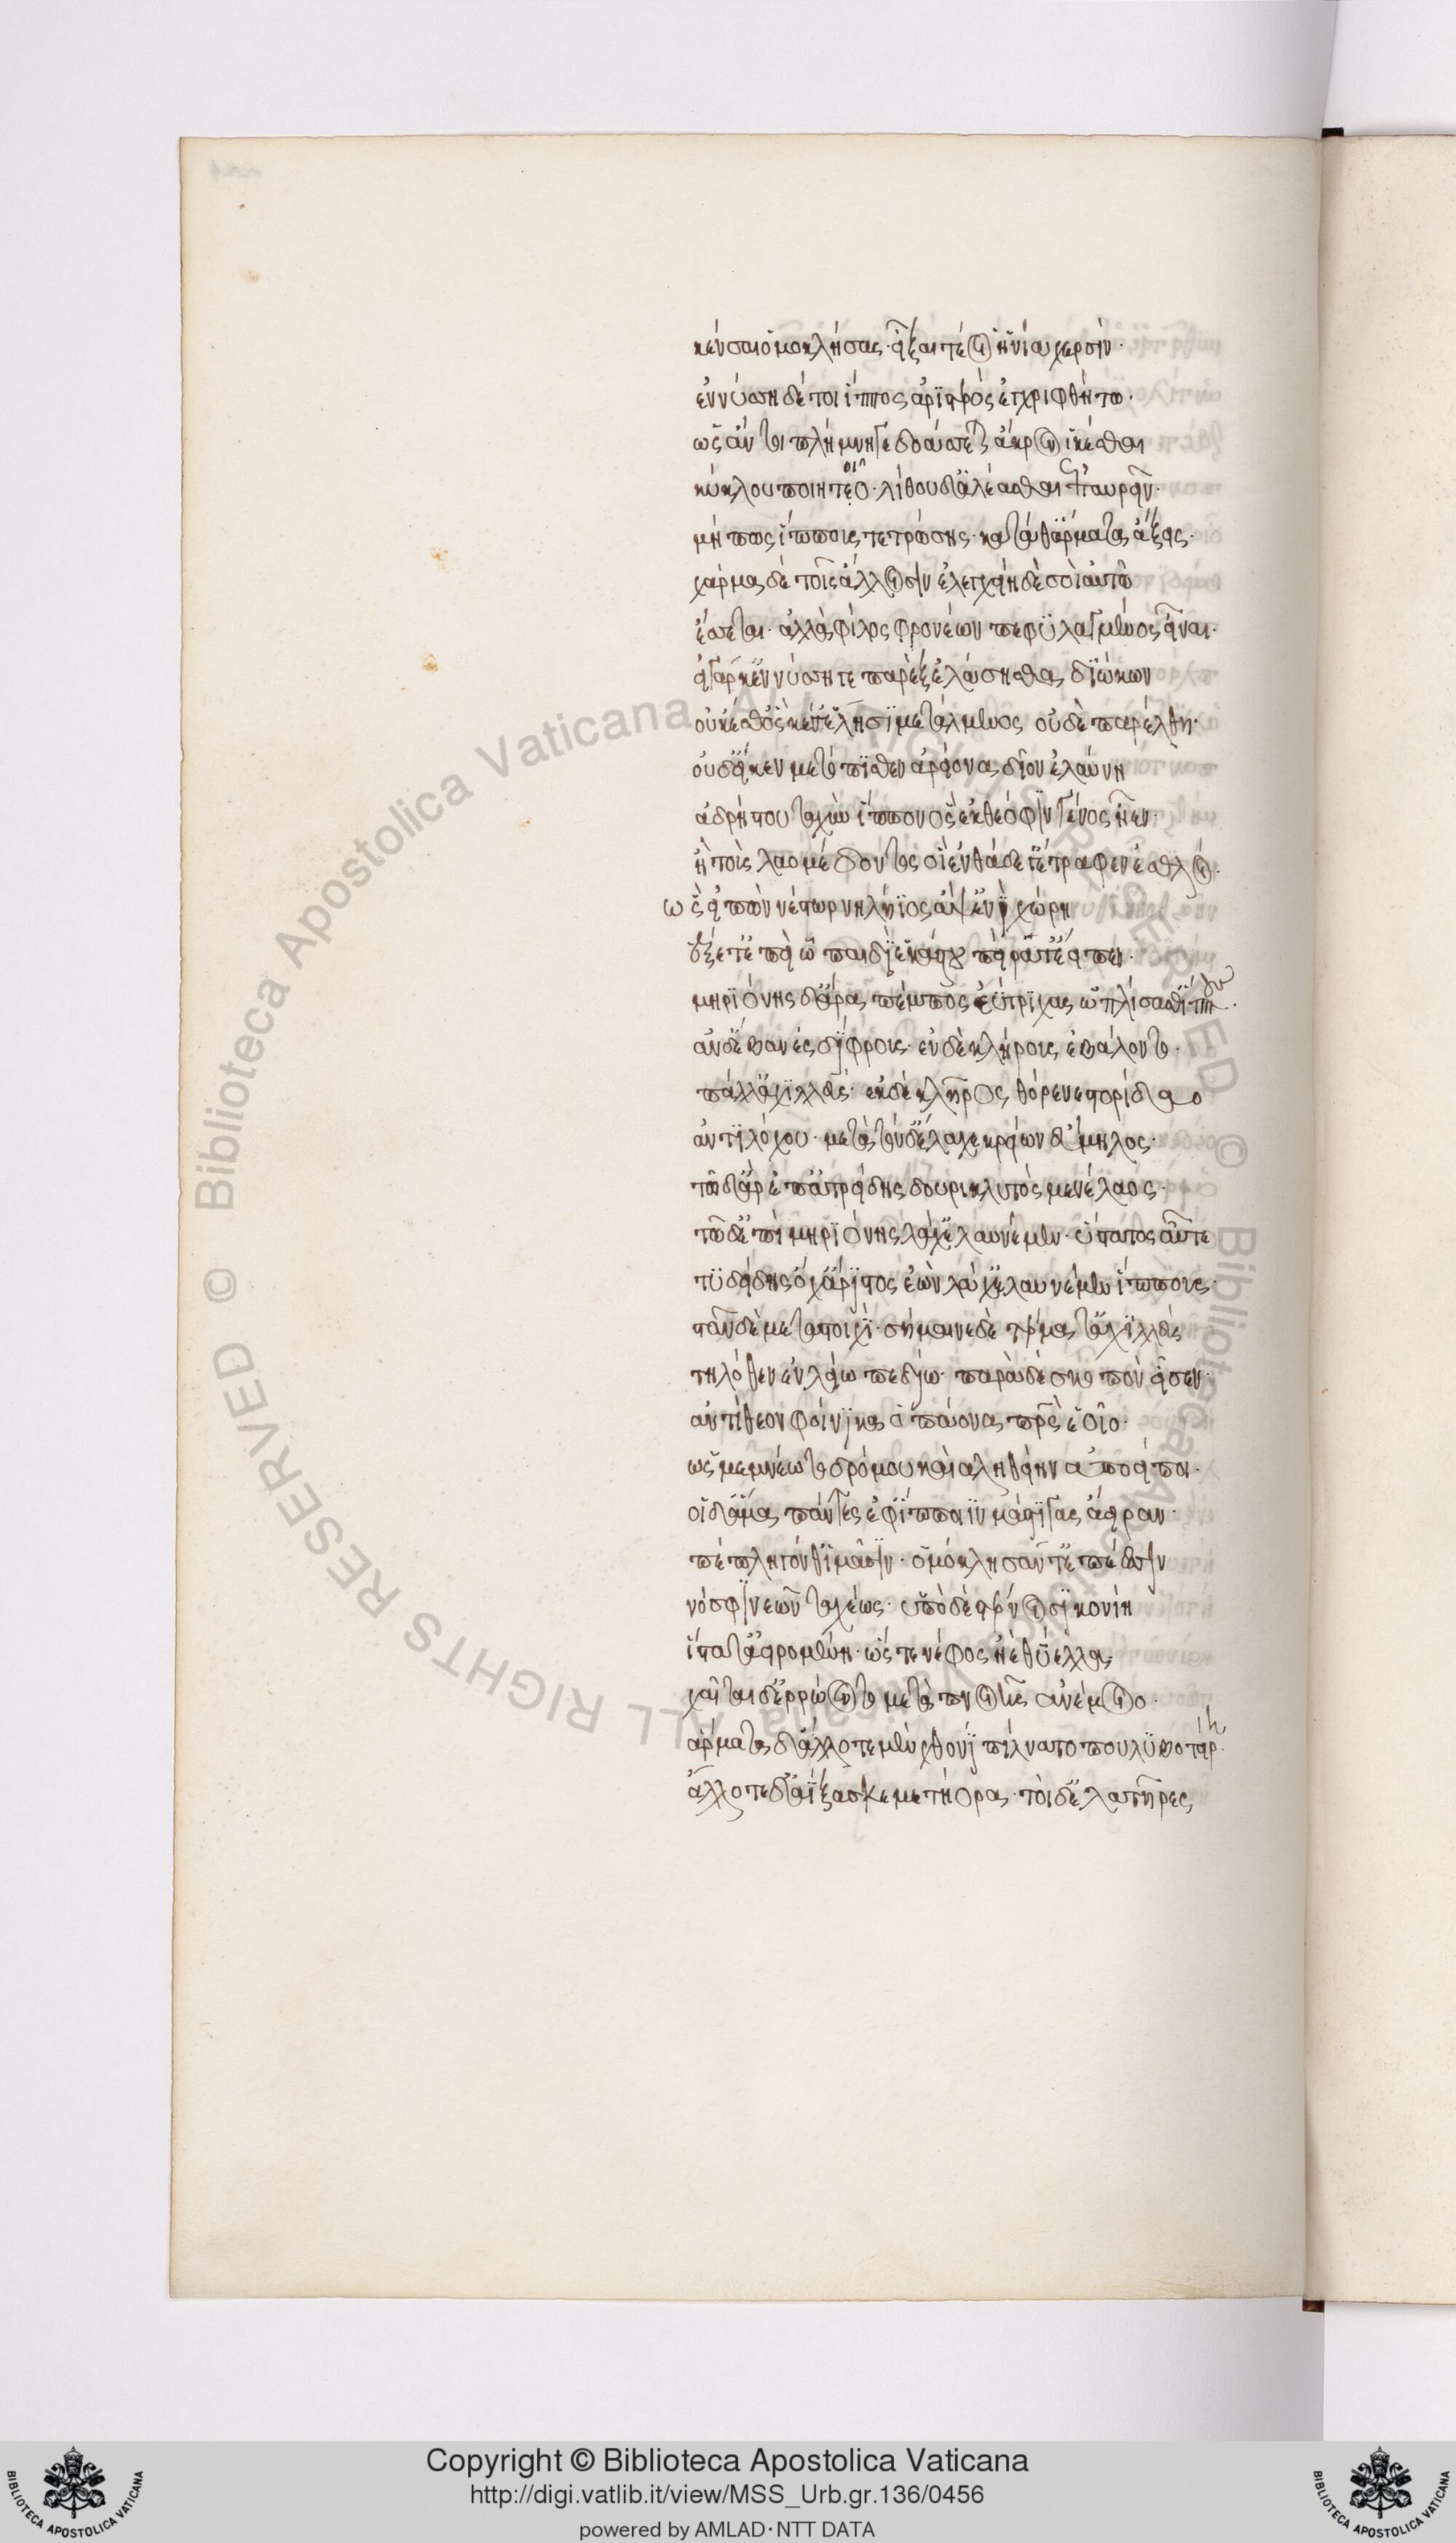 κένσαι ὁμοκλήσας· εἶξαί τέ οἱ ἡνία χερσίν·
ἐν νύσσῃ δέ τοι ἵππος ἀριστερὸς ἐγχριμφθήτω·
ὡς ἄν τοι πλήμνη γε δοάσσεται ἄκρον ἱκέσθαι
κύκλου ποιητοῖο· λίθου δ' ἀλέασθαι ἐπαυρεῖν·
μή πως ἵππους τε τρώσῃς· κατά θ' ἅρματα ἄξῃς·
χάρμα δὲ τοῖς ἄλλοισιν ἐλεγχείη δὲ σοὶ αὐτῷ
ἔσσεται· ἀλλὰ φίλος φρονέων πεφυλαγμένος εἶναι·
εἰ γάρ κ' ἐν νύσσῃ γε παρὲξ ἐλάσησθα διώκων
οὐκ ἔσθ' ὅς κέν σ' ἕλῃσι μετάλμενος οὐδὲ παρέλθῃ·
οὐδ' εἴ κεν μετόπισθεν ἀρείονα δῖον ἐλαύνῃ
ἀδρήστου ταχὺν ἵππον ὃς ἐκ θεόφιν γένος ἦεν·
ἢ τοὺς λαομέδοντος οἳ ἐνθάδε γ' ἔτραφεν ἐσθλοί·
ὣς εἰπὼν νέστωρ νηλήϊος ἂψ ἐνὶ χώρῃ
ἕζετ' ἐπεὶ ᾧ παιδὶ ἑκάστου πείρατ' ἔειπεν·
μηριόνης δ' ἄρα πέμπτος ἐΰτριχας ὡπλίσαθ' ἵππους·
ἂν δ' ἔβαν ἐς δίφρους· ἐν δὲ κλήρους ἐβάλοντο·
πάλλ' ἀχιλλεύς· ἐκ δὲ κλῆρος θόρε νεστορίδαο
ἀντιλόχου· μετὰ τὸν δ' ἔλαχε κρείων εὔμηλος·
τῷ δ' ἄρ' ἐπ' ἀτρείδης δουρικλυτὸς μενέλαος·
τῷ δ' ἐπὶ μηριόνης λάχ' ἐλαυνέμεν· ὕστατος αὖτε
τυδείδης ὄχ' ἄριστος ἐὼν λάχ' ἐλαυνέμεν ἵππους·
στὰν δὲ μεταστοιχί· σήμηνε δὲ τέρματ' ἀχιλλεύς
τηλόθεν ἐν λείῳ πεδίῳ· παρὰ δὲ σκοπὸν εἷσεν·
ἀντίθεον φοίνικα ὀπάονα πατρὸς ἑοῖο·
ὡς μεμνέωτο δρόμου καὶ ἀληθείην ἀποείποι·
οἱ δ' ἅμα πάντες ἐφ' ἵπποιιν μάστιγας ἄειραν·
πέπληγόν θ' ἱμᾶσιν· ὁμόκλησάν τ' ἐπέεσσιν
νόσφιν νεῶν ταχέως· ὑπὸ δὲ στέρνοισι κονίη
ἵστατ' ἀειρομένη· ὥς τε νέφος ἠὲ θύελλα·
χαῖται δ' ἐρρώοντο μετὰ πνοιῇς ἀνέμοιο·
ἅρματα δ' ἄλλοτε μὲν χθονὶ πίλνατο πουλυβοτείρῃ·
ἄλλοτε δ' ἀΐξασκε μετήορα· τοὶ δ' ἐλατῆρες
Copyright © Biblioteca Apostolica Vaticana
http://digi.vatlib.it/view/MSS_Urb.gr.136/0456
powered by AMLAD·NTT DATA